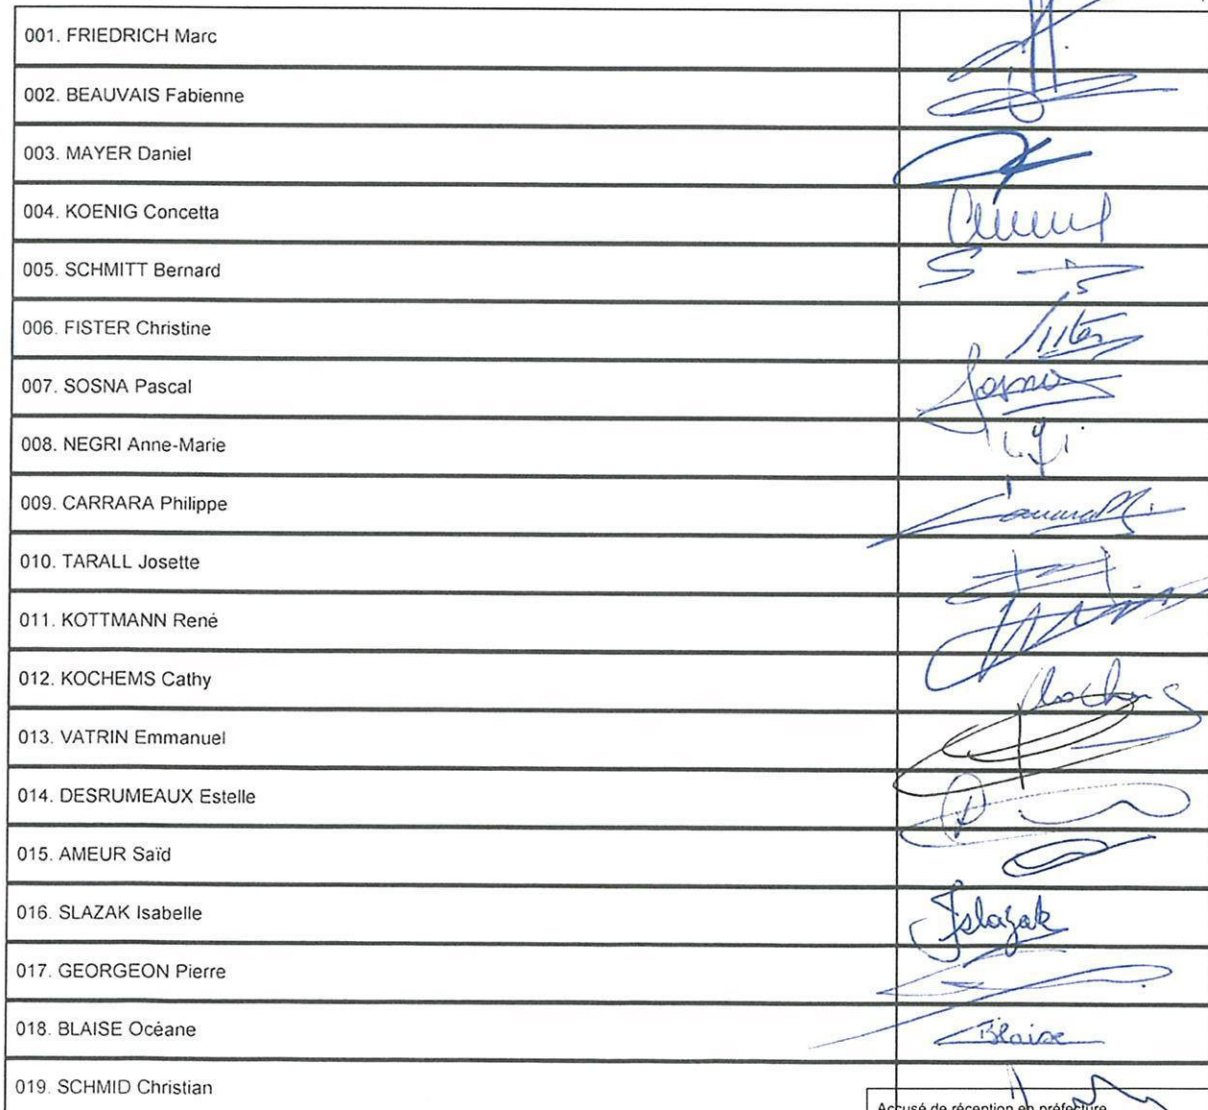 001. FRIEDRICH Marc
002. BEAUVAIS Fabienne
003. MAYER Daniel
004. KOENIG Concetta
005. SCHMITT Bernard
006. FISTER Christine
007. SOSNA Pascal
Sosna
008. NEGRI Anne-Marie
009. CARRARA Philippe
010. TARALL Josette
011. KOTTMANN René
012. KOCHEMS Cathy
013. VATRIN Emmanuel
014. DESRUMEAUX Estelle
015. AMEUR Saïd
016. SLAZAK Isabelle
Islazak
017. GEORGEON Pierre
018. BLAISE Océane
Blaise
019. SCHMID Christian
Accusé de réception en préfecture